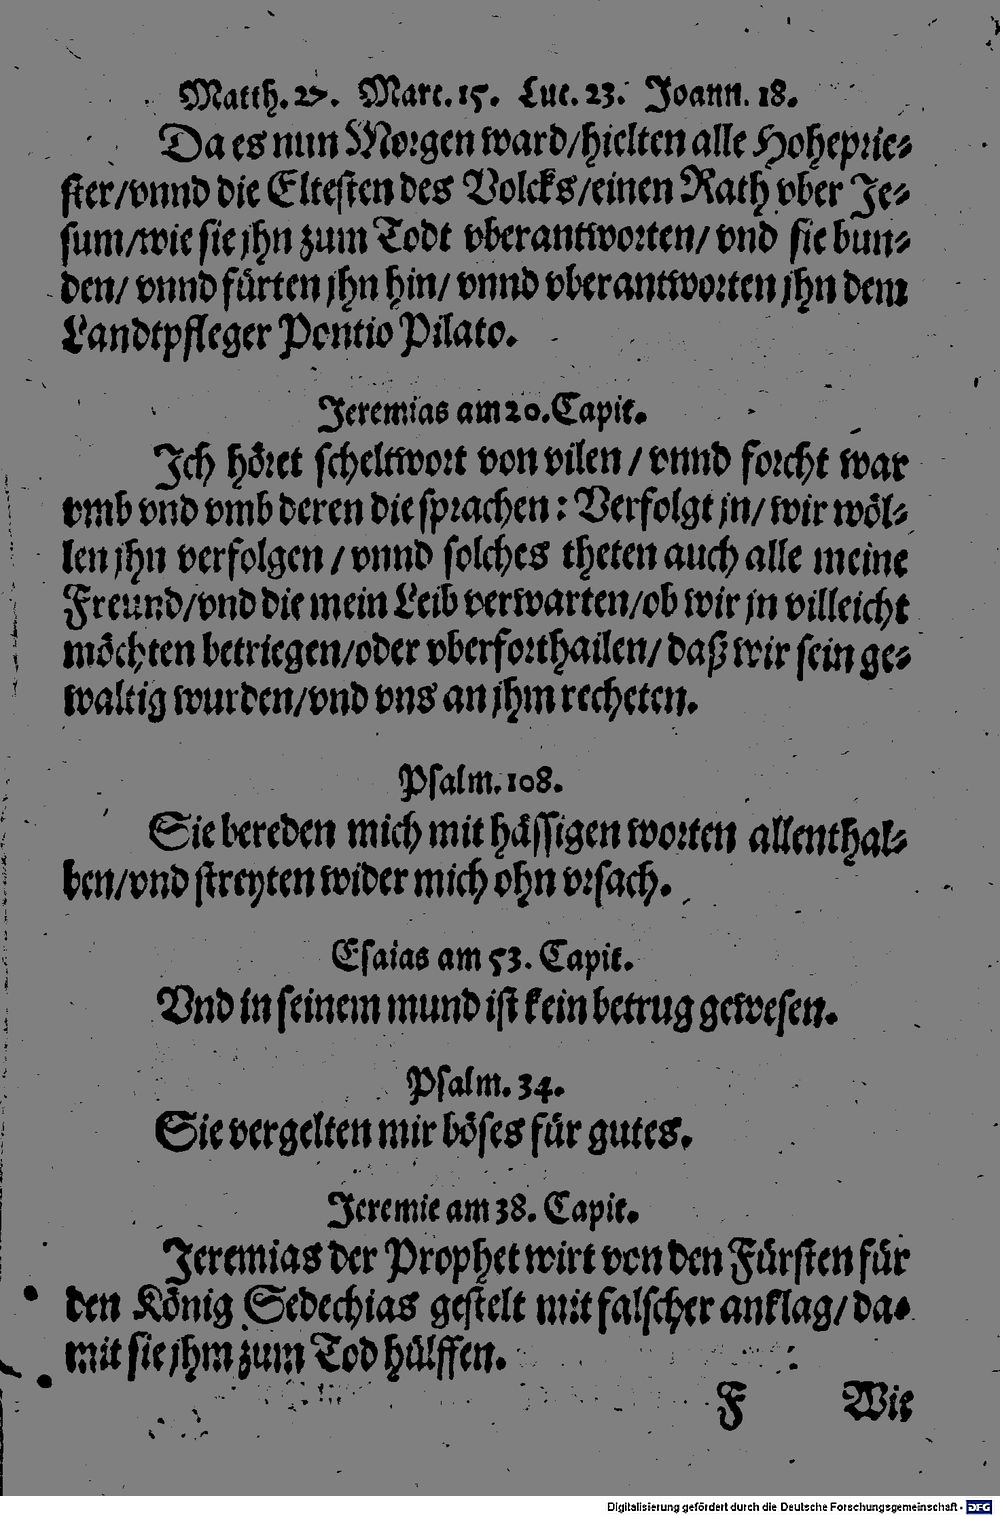 Matth. 27. Marc. 15. Luc. 23. Joann. 18.
Da es nun Morgen ward/hielten alle Hoheprie⸗
ster/vnnd die Eltesten des Volcks/einen Rath vber Je⸗
sum/wie sie jhn zum Todt vberantworten/ vnd sie bun⸗
den/ vnnd fürten jhn hin/ vnnd vberantworten jhn dem
Landtpfleger Pontio Pilato.
Jeremias am 20. Capit.
Ich höret scheltwort von vilen / vnnd forcht war
vmb vnd vmb deren die sprachen: Verfolgt jn/ wir wöl⸗
len jhn verfolgen / vnnd solches theten auch alle meine
Freund/vnd die mein Leib verwarten/ob wir jn villeicht
möchten betriegen/oder vberforthailen/ daß wir sein ge⸗
waltig wurden/vnd vns an jhm recheten.
Psalm. 108.
Sie bereden mich mit hässigen worten allenthal⸗
ben/vnd streyten wider mich ohn vrsach.
Esaias am 53. Capit.
Vnd in seinem mund ist kein betrug gewesen.
Psalm. 34.
Sie vergelten mir böses für gutes.
Jeremie am 38. Capit.
Jeremias der Prophet wirt von den Fürsten für
den König Sedechias gestelt mit falscher anklag/ da⸗
mit sie jhm zum Tod hülffen.
F Wie
Digitalisierung gefördert durch die Deutsche Forschungsgemeinschaft - DFG